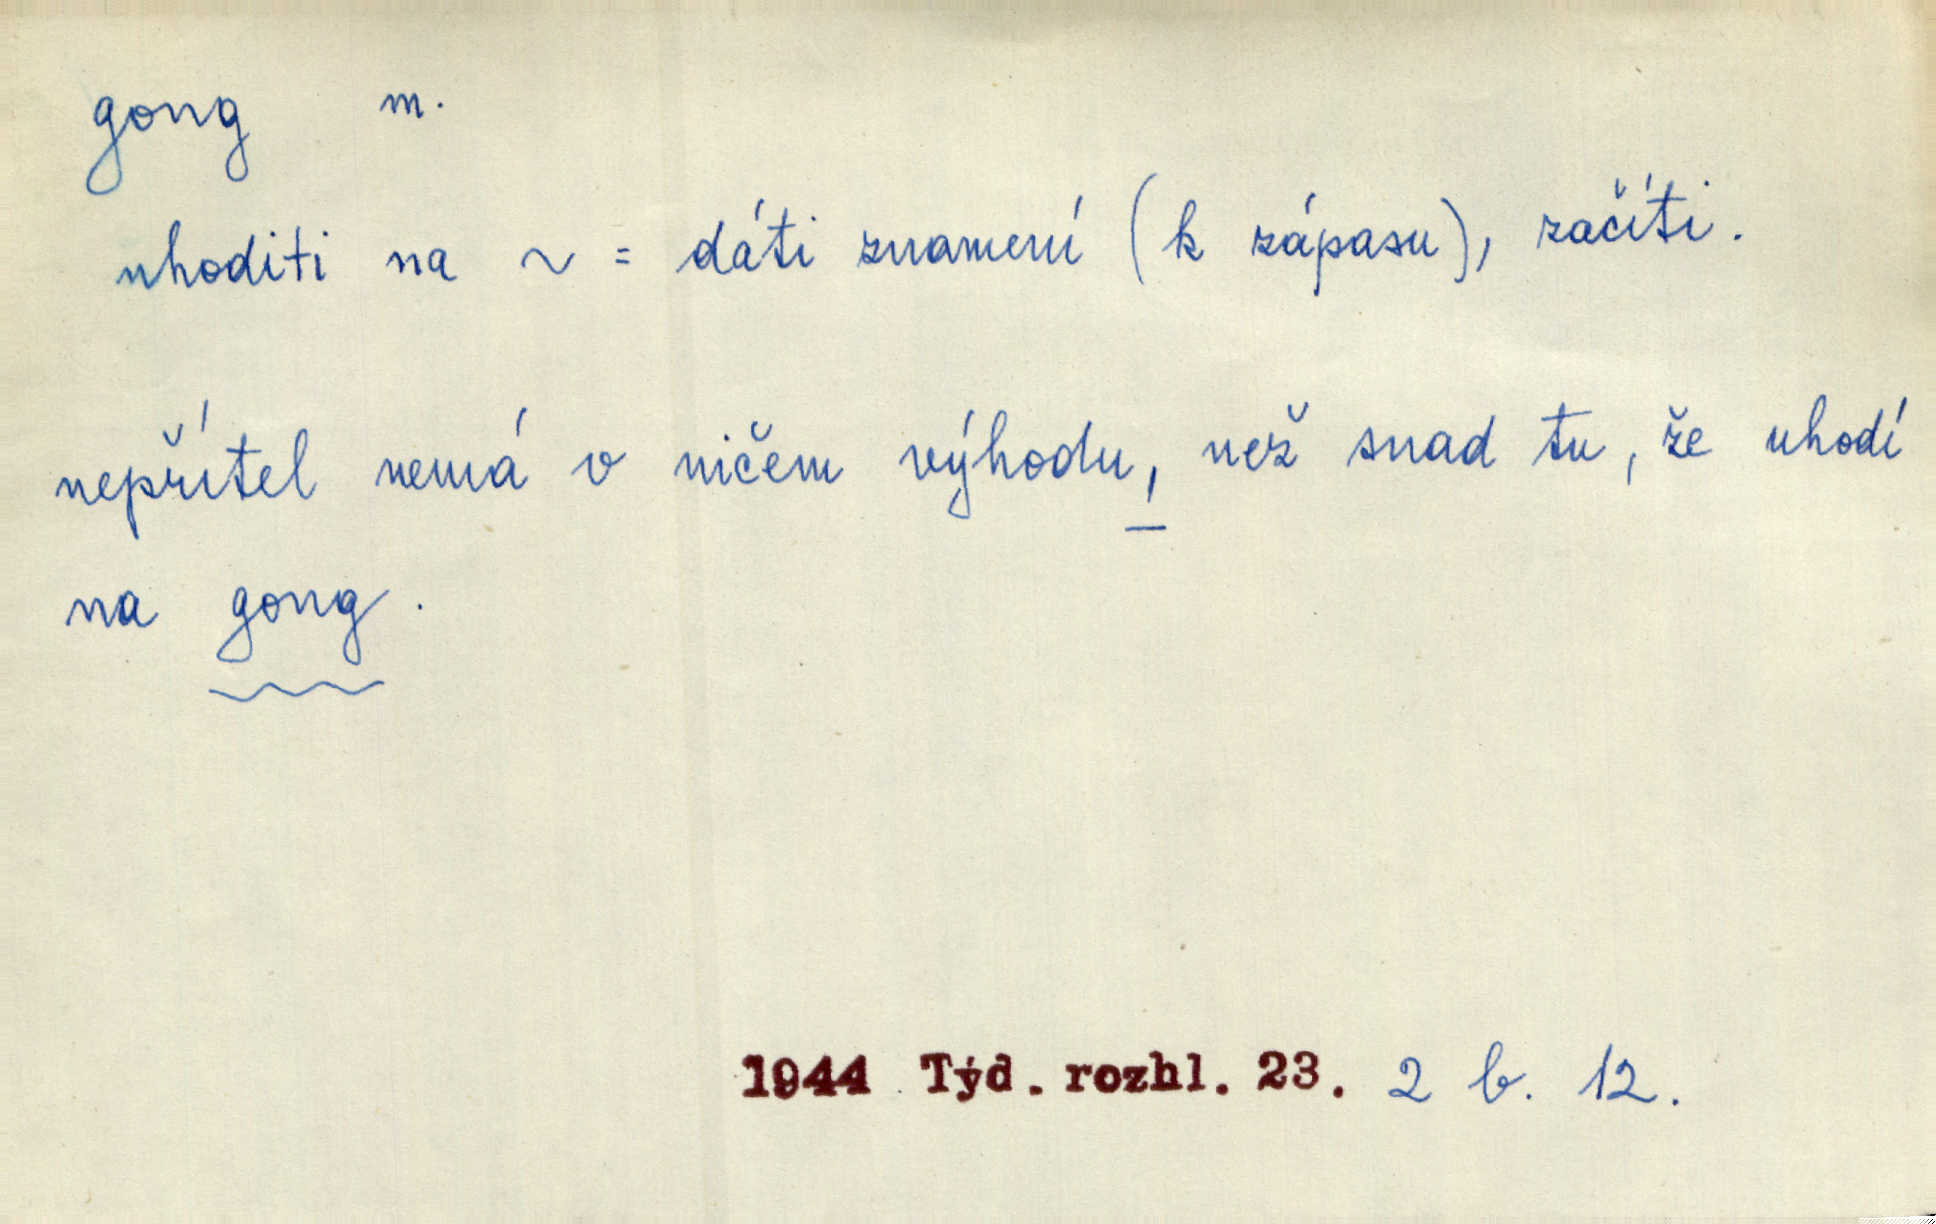 gong m.
uhoditi na ~ = dáti znamení (k zápasu), začíti.
nepřítel nemá v ničem výhodu, než snad tu, že uhodí
na gong.
1944 Týd. rozhl. 23. 2 b. 12.